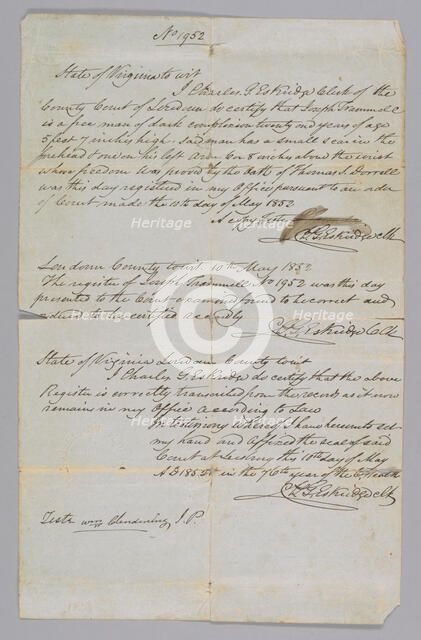 No 1952
State of Virginia to wit
I Charles G Eskridge Clerk of the
County Court of Loudoun do certify that Joseph Trammell
is a free man of dark complexion twenty one years of age
5 feet 7 inches high. Said man has a small scar in the
forehead & one on his left Arm 6 or 8 inches above the wrist
whose freedom was proved by the oath of Thomas J. Dorrell
was this day registered in my Office pursuant to an order
of Court made the 10th day of May 1852
A copy Teste
Ch G Eskridge Clk
Loudoun County to wit. 10th May 1852
The register of Joseph Trammell No 1952 was this day
presented to the Court & examined found to be correct and
ordered to be certified accordly
Ch G Eskridge C Clk
State of Virginia Loudoun County to wit
I Charles G Eskridge do certify that the above
Register is correctly transcribed from the records as it now
remains in my Office according to Law
In testimony whereof I have hereunto set
my hand and affixed the seal of said
Court at Leesburg this 10th day of May
AD 1852 & in the 76th year of the C.wealth
Ch G Eskridge Clk
Teste Wm Clendening J.P.
Heritage Heritage
Heritage Heritage
Heritage Heritage